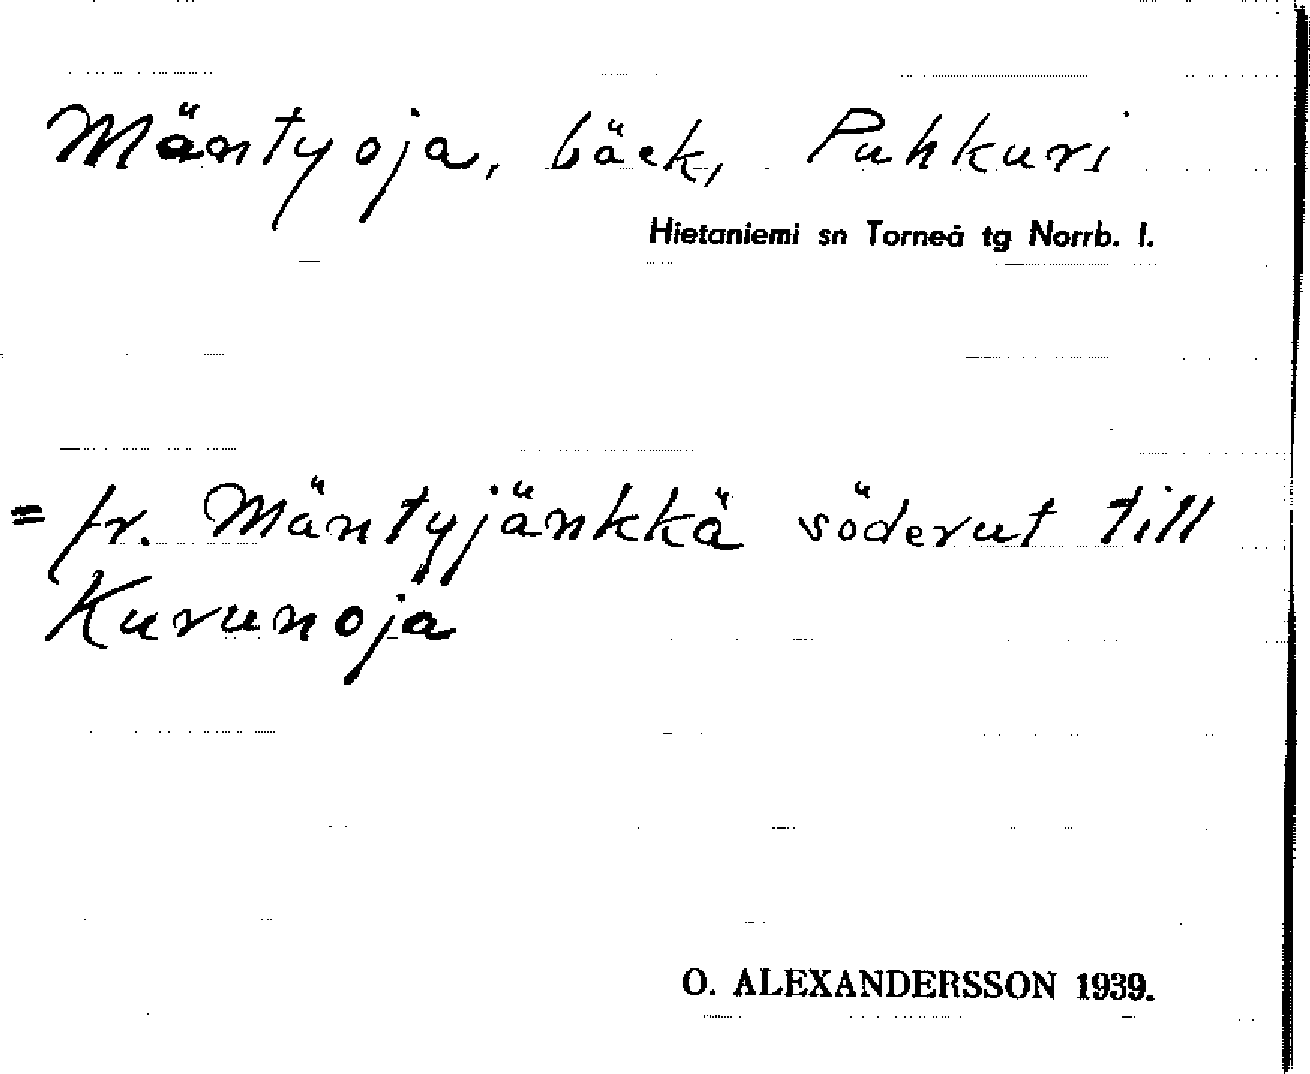 Mäntyoja, bäck, Puhkuri
Hietaniemi sn Torneå tg Norrb. l.
= fr. Mäntyjänkkä söderut till
Kurunoja
O. ALEXANDERSSON 1939.